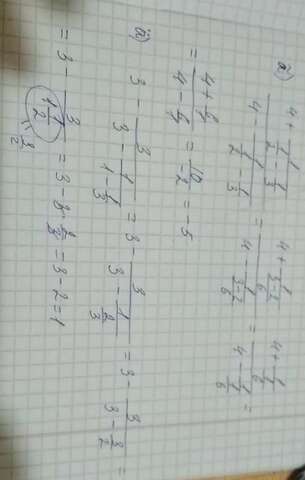 a) (4 + 1/(1/2 - 1/3)) / (4 - 1/(1/2 - 1/3)) = (4 + 1/((3-2)/6)) / (4 - 1/((3-2)/6)) = (4 + 1/(1/6)) / (4 - 1/(1/6)) =
= (4 + 6)/(4 - 6) = 10/-2 = -5
ä) 3 - 3/(3 - 1/(1 - 1/3)) = 3 - 3/(3 - 1/(2/3)) = 3 - 3/(3 - 3/2) =
= 3 - 3/(1 1/2) = 3 - 3·2/3 = 3 - 2 = 1
3/2